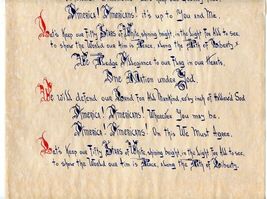 America! Americans! it's up to You and Me.
Let's keep our Fifty Stars of White, shining bright, in the light for All to see,
to show the World our Aim is Peace, along the Path of Liberty.
We Pledge Allegiance to our Flag in our Hearts,
One Nation under God.
We will defend our Land for All Mankind, each inch of Hallowed Sod
America! Americans! Wherever You may be,
America! Americans! On this We Must Agree,
Let's Keep our Fifty Stars of White, shining bright, in the light for All to see,
to show the World our Aim is Peace, along the Path of Liberty.